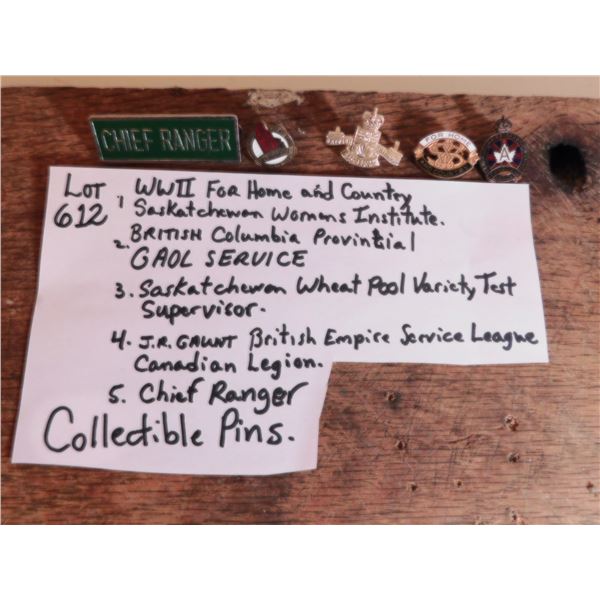 CHIEF RANGER
FOR HOME
LOT 612
1 WWII For Home and Country
Saskatchewan Womans Institute.
2. BRITISH Columbia Provintial
GAOL SERVICE
3. Saskatchewan Wheat Pool Variety Test
Supervisor.
4. J.R. GAUNT British Empire Service League
Canadian Legion.
5. Chief Ranger
Collectible Pins.